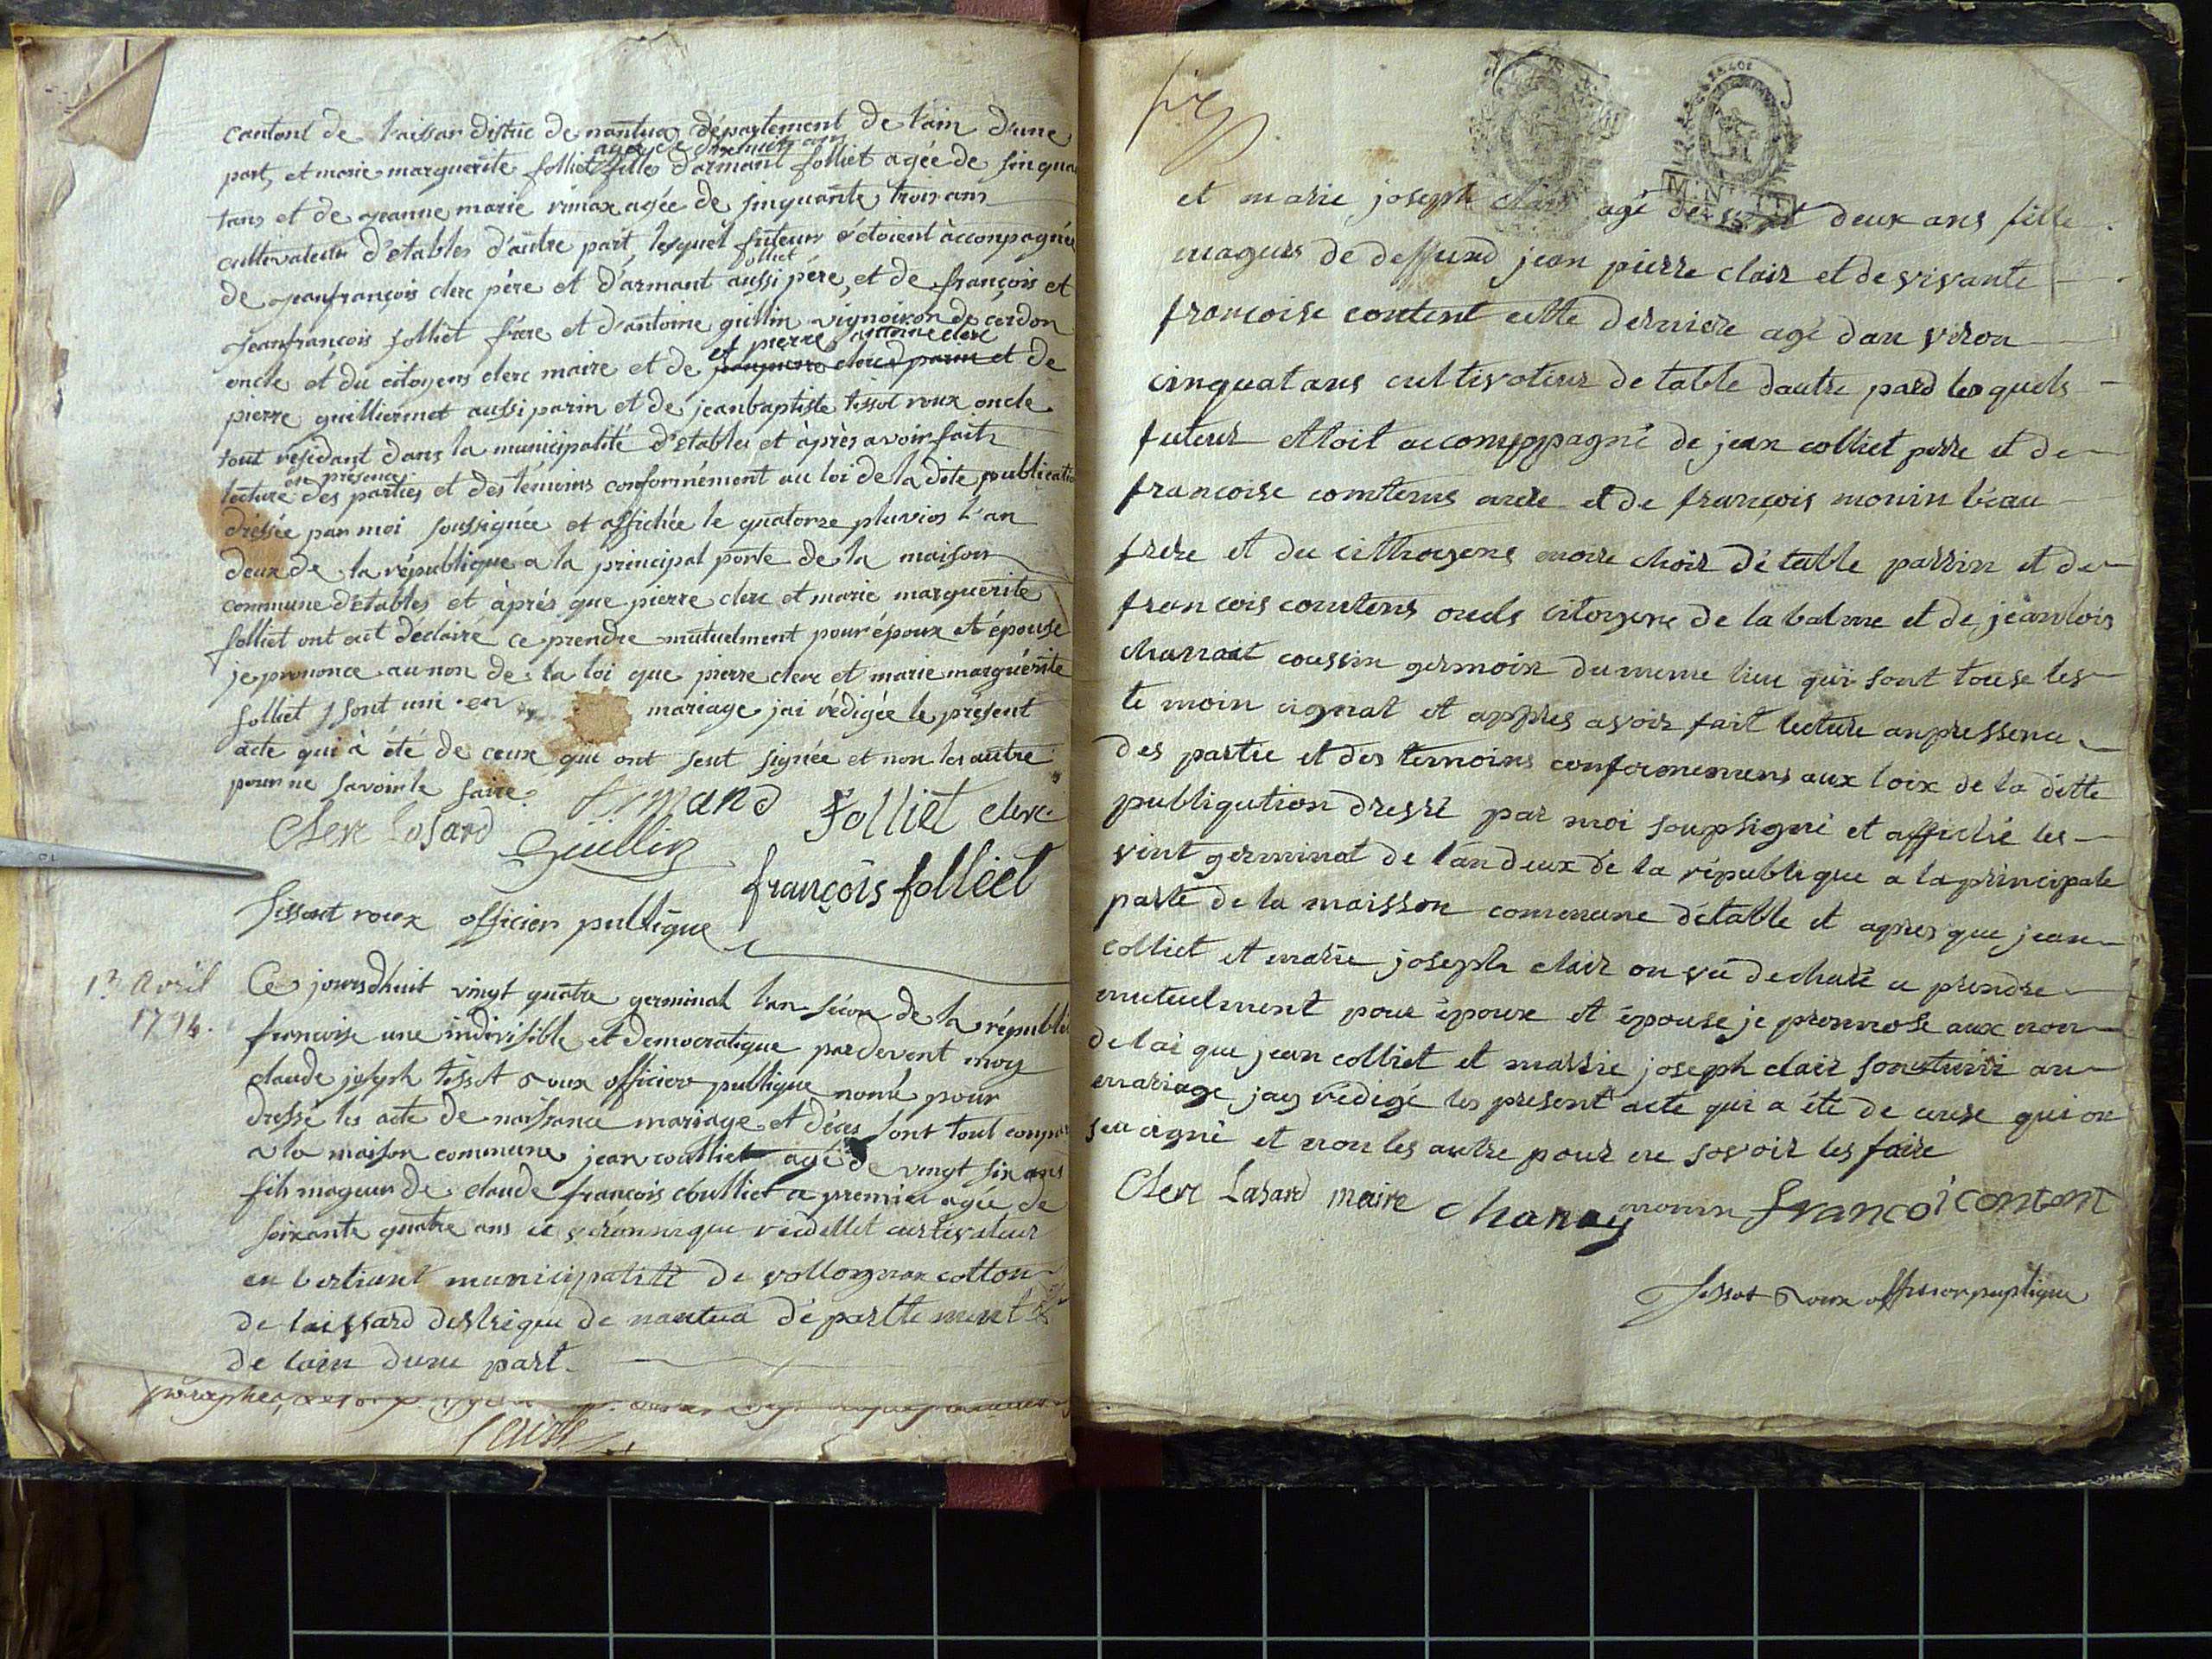 cantont de laissar distric de nantua département de l'ain d'une
agée de dixneufs ans
part, et marie marguerite folliet fille d'armant folliet agée de sinqua
tans et de jeanne marie agée de sinquante trois ans
cultivateur d'etables d'autre part, lesquel futeurs étoient accompagnée
de jeanfrançois clerc père et d'armant folliet aussi père, et de françois et
jeanfrançois folliet frère et d'antoine guillin vignoiron de cerdon
et pierre antoine clerc
oncle et du citoyens clerc maire et de de
pierre guilliermet aussi parin et de jeanbaptiste tissot roux oncle
tout résidant dans la municipalité d'etables et après avoir fait
lecture en présence des parties et des témoins conformément au loi de la dite publicatio
dréssée par moi soussignée et affichée le quatorze pluvios l'an
deux de la république a la principal porte de la maison
commune d'etables et àprès que pierre clerc et marie marguerite
folliet ont eut déclairé ce prendre mutuelment pour époux et épouse
je prononce au non de la loi que pierre clerc et marie marguérite
folliet sont uni en mariage jai rédigée le présent
acte qui à été de ceux que ont seut signée et non les autre
pour ne savoir le faire
Armand Folliet clerc
Clerc Lasard Guillin
françois folliet
tissot roux officier publique
13 avril
1794.
Ce jourdhuit vingt quatre germinal l'an sécon de la républi
francoise une indivisible et democratique pardevent moy
claude joseph tissot roux officier publique nomé pour
dressé les acte de naissance mariage et décès sont tout compar
a la maison commune jean coulliet agé de vingt six ans
fils mageur de claude françois coulliet a premier agée de
soixante quatre ans et veronnique cultivateur
en bertiant municipalité de vollognax cotton
de laissard destrique de nantua départtement
de lain dune part
et marie joseph clair agé de deux ans fille
mageur de deffund jean pierre clair et de vivante
francoise content cette derniere agé dan viron
cinquat ans cultivateur de table dautre pard lesquels
futeur ettoit accomppagné de jean colliet perre et de
francoise comtens et de françois monin beau
frere et du cithoyens maire clair détable parrin et de
francois comtens oncle citoyens de la balme et de jeanlois
charnait coussin germain du meme lieu qui sont touse les
te moin cignat et appres avoir fait lecture anpressence
des partie et des temoins conformemens aux loix de la ditte
publiqution dressé par moi soupsigné et affiché les
vint germinat de lan deux de la république a la principale
parte de la maisson commune détable et apres que jean
colliet et marie joseph clair on vu dechare ce prendre
mutuelment pour époux et épouse je pronnose aux non
de lai que jean colliet et marrie joseph clair sontunis an
mariage jay rédigé les present acte qui a été de ceuse qui on
seu cigné et non les autre pour ne savoir les faire
Clerc Lasard maire Chanay monin francoi contont
tissot roux officior puplique